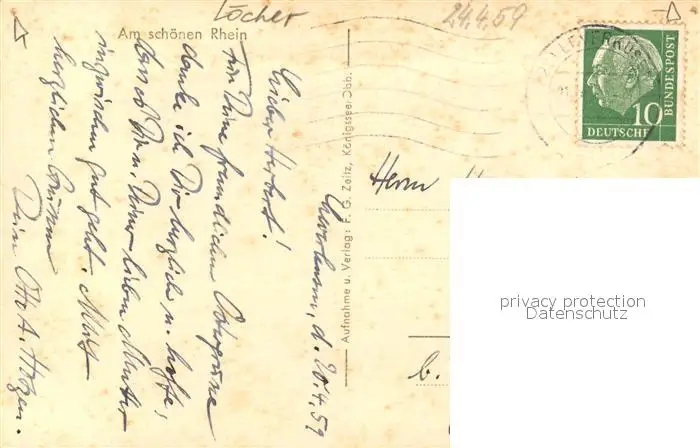 Löcher
24.4.59
Am schönen Rhein
LEVERKUS
10
DEUTSCHE
BUNDESPOST
Aufnahme u. Verlag: F. G. Zeitz, Königssee/Obb.
Leverkusen, d. 20.4.59
Lieber Herbert!
Für Deine freundlichen Ostergrüsse
danke ich Dir herzlich u. hoffe,
dass es Dir u. Deiner lieben Mutter
inzwischen gut geht. Mit
herzlichen Grüssen
Dein Otto A.
Herrn
b.
privacy protection
Datenschutz